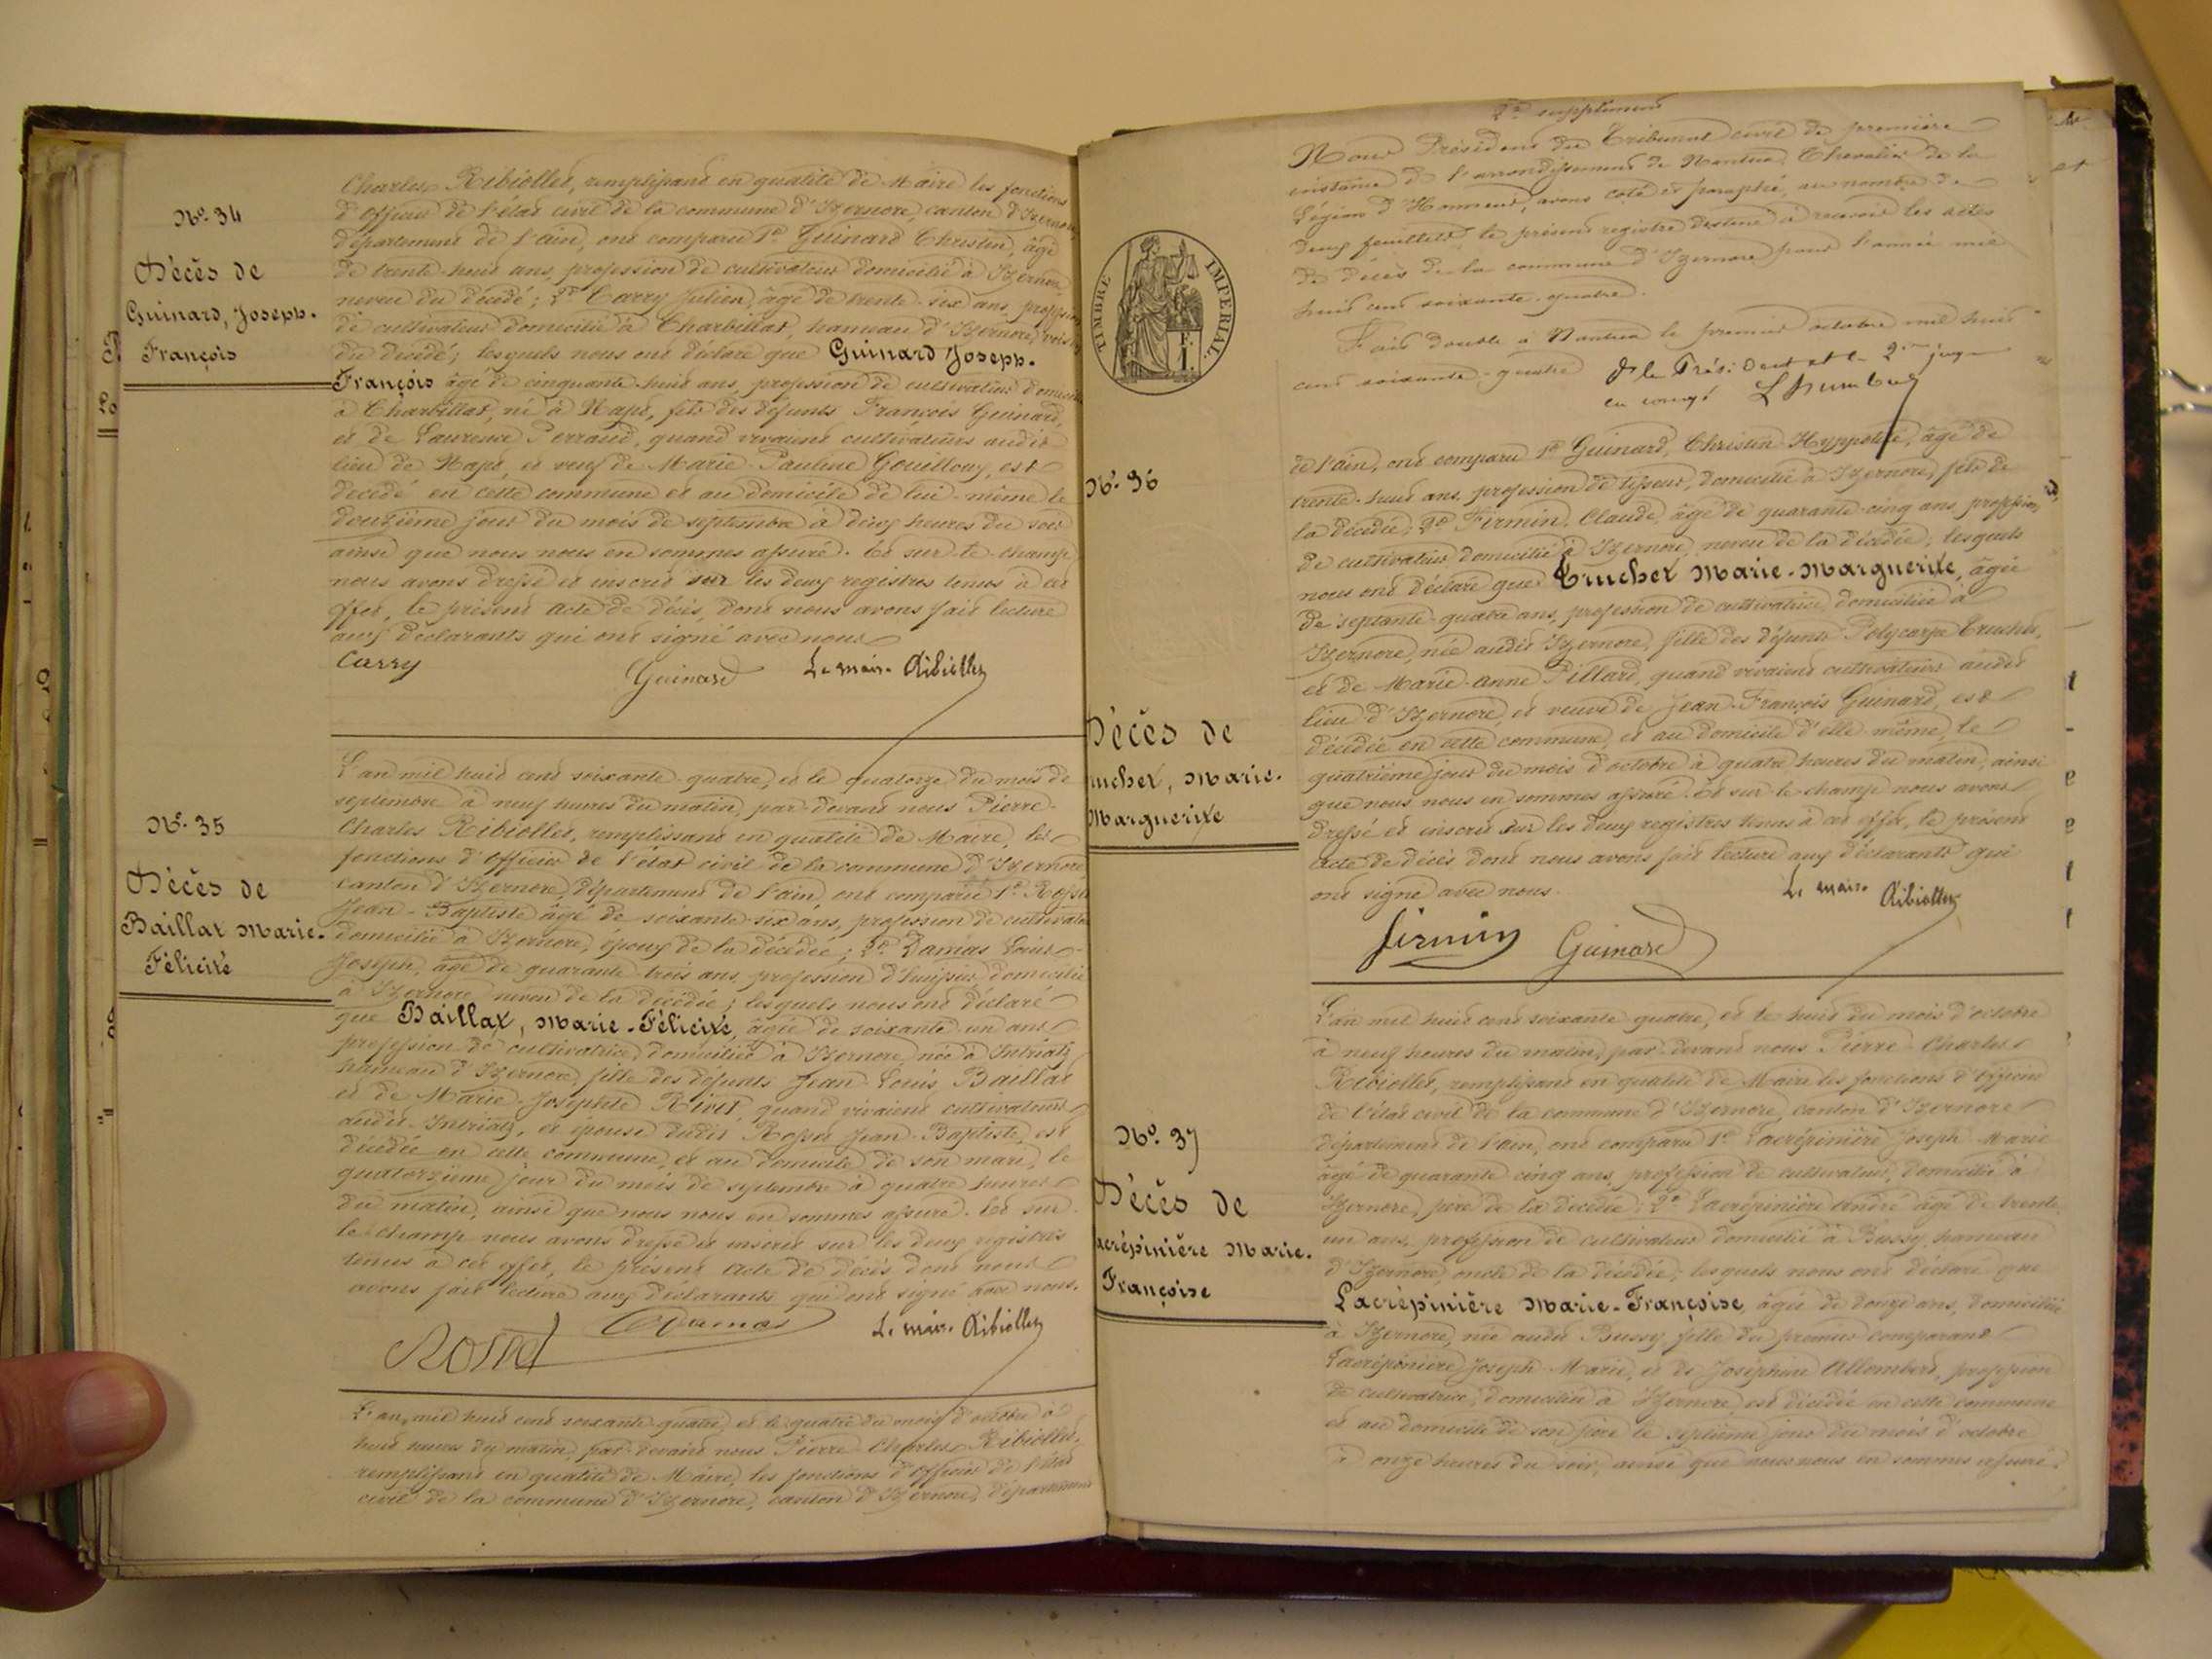 No. 34
Décès de
Guinard, Joseph-
François
Charles Ribiollet, remplissant en qualité de Maire les fonctions
d'officier de l'état civil de la commune d'Izernore, canton d'Izernore,
département de l'ain, ont comparu 1º Guinard Christin, âgé
de trente-huit ans, profession de cultivateur domicilié à Izernore,
neveu du décédé; 2º Carry Julien, âgé de trente-six ans, profession
de cultivateur domicilié à Charbillat, hameau d'Izernore, voisin
du décédé; lesquels nous ont déclaré que Guinard Joseph-
François âgé de cinquante-huit ans, profession de cultivateur domicilié
à Charbillat, né à Napt, fils des défunts François Guinard,
et de Laurence Perraud, quand vivaient cultivateurs audit
lieu de Napt, et veuf de Marie-Pauline Gouilloux, est
décédé en cette commune et au domicile de lui-même le
douzième jour du mois de septembre à deux heures du soir
ainsi que nous nous en sommes assuré. Et sur-le-champ
nous avons dressé et inscrit sur les deux registres tenus à cet
effet, le présent acte de décès, dont nous avons fait lecture
aux déclarants qui ont signé avec nous
Carry Guinard Le maire Ribiollet
No. 35
Décès de
Baillat Marie-
Félicité
L'an mil huit cent soixante-quatre, et le quatorze du mois de
septembre à neuf heures du matin, par-devant nous Pierre-
Charles Ribiollet, remplissant en qualité de Maire, les
fonctions d'officier de l'état civil de la commune d'Izernore,
canton d'Izernore, département de l'ain, ont comparu 1º Rosset
Jean-Baptiste âgé de soixante-six ans, profession de cultivateur
domicilié à Izernore, époux de la décédée; 2º Damas Louis-
Joseph, âgé de quarante-trois ans, profession d'huissier, domicilié
à Izernore neveu de la décédée; lesquels nous ont déclaré
que Baillat, Marie-Félicité, âgée de soixante-un ans
profession de cultivatrice, domiciliée à Izernore, née à Intriatz
hameau d'Izernore, fille des défunts Jean-Louis Baillat
et de Marie-Josephte Rivet, quand vivaient cultivateurs
audit Intriatz, et épouse dudit Rosset Jean-Baptiste, est
décédée en cette commune, et au domicile de son mari, le
quatorzième jour du mois de septembre à quatre heures
du matin, ainsi que nous nous en sommes assuré. Et sur-
le-champ nous avons dressé et inscrit sur les deux registres
tenus à cet effet, le présent acte de décès dont nous
avons fait lecture aux déclarants qui ont signé avec nous.
Rosset Damas Le maire Ribiollet
L'an mil huit cent soixante-quatre, et le quatre du mois d'octobre à
huit heures du matin, par-devant nous Pierre-Charles Ribiollet,
remplissant en qualité de Maire, les fonctions d'officier de l'état
civil de la commune d'Izernore, canton d'Izernore, département
2e supplément
Nous Président du Tribunal civil de première
instance de l'arrondissement de Nantua, Chevalier de la
Légion d'Honneur, avons coté et paraphé, au nombre de
deux feuillets, le présent registre destiné à recevoir les actes
de décès de la commune d'Izernore pour l'année mil
huit cent soixante-quatre.
Fait double à Nantua le premier octobre mil huit
cent soixante-quatre
Pr le Président et le 2me juge
en congé
TIMBRE IMPERIAL.
No. 36
Décès de
ucher, Marie-
Marguerite
de l'ain, ont comparu 1º Guinard, Christin-Hyppolite, âgé de
trente-huit ans, profession de tisseur, domicilié à Izernore, fils de
la décédée; 2º Firmin, Claude, âgé de quarante-cinq ans, profession
de cultivateur domicilié à Izernore, neveu de la décédée, lesquels
nous ont déclaré que Trucher Marie-Marguerite, âgée
de septante-quatre ans, profession de cultivatrice, domiciliée à
Izernore, née audit Izernore, fille des défunts Polycarpe Trucher,
et de Marie-Anne Pillard, quand vivaient cultivateurs audit
lieu d'Izernore, et veuve de Jean-François Guinard, est
décédée en cette commune, et au domicile d'elle-même, le
quatrième jour du mois d'octobre à quatre heures du matin, ainsi
que nous nous en sommes assuré. Et sur-le-champ nous avons
dressé et inscrit sur les deux registres tenus à cet effet, le présent
acte de décès dont nous avons fait lecture aux déclarants qui
ont signé avec nous.
Le maire Ribiollet
Firmin Guinard
No. 37
Décès de
acrépinière Marie-
Françoise
L'an mil huit cent soixante quatre, et le huit du mois d'octobre
à neuf heures du matin, par-devant nous Pierre-Charles
Ribiollet, remplissant en qualité de Maire les fonctions d'officier
de l'état civil de la commune d'Izernore, canton d'Izernore
département de l'ain, ont comparu 1º Lacrépinière Joseph-Marie
âgé de quarante cinq ans, profession de cultivateur, domicilié à
Izernore, père de la décédée; 2º Lacrépinière André âgé de trente
un ans, profession de cultivateur domicilié à Bussy, hameau
d'Izernore, oncle de la décédée; lesquels nous ont déclaré que
Lacrépinière Marie-Françoise, âgée de douze ans, domiciliée
à Izernore, née audit Bussy, fille du premier comparant
Lacrépinière Joseph-Marie, et de Joséphine Allombert, profession
de cultivatrice, domiciliée à Izernore est décédée en cette commune
et au domicile de son père le septième jour du mois d'octobre
à onze heures du soir, ainsi que nous nous en sommes assuré.